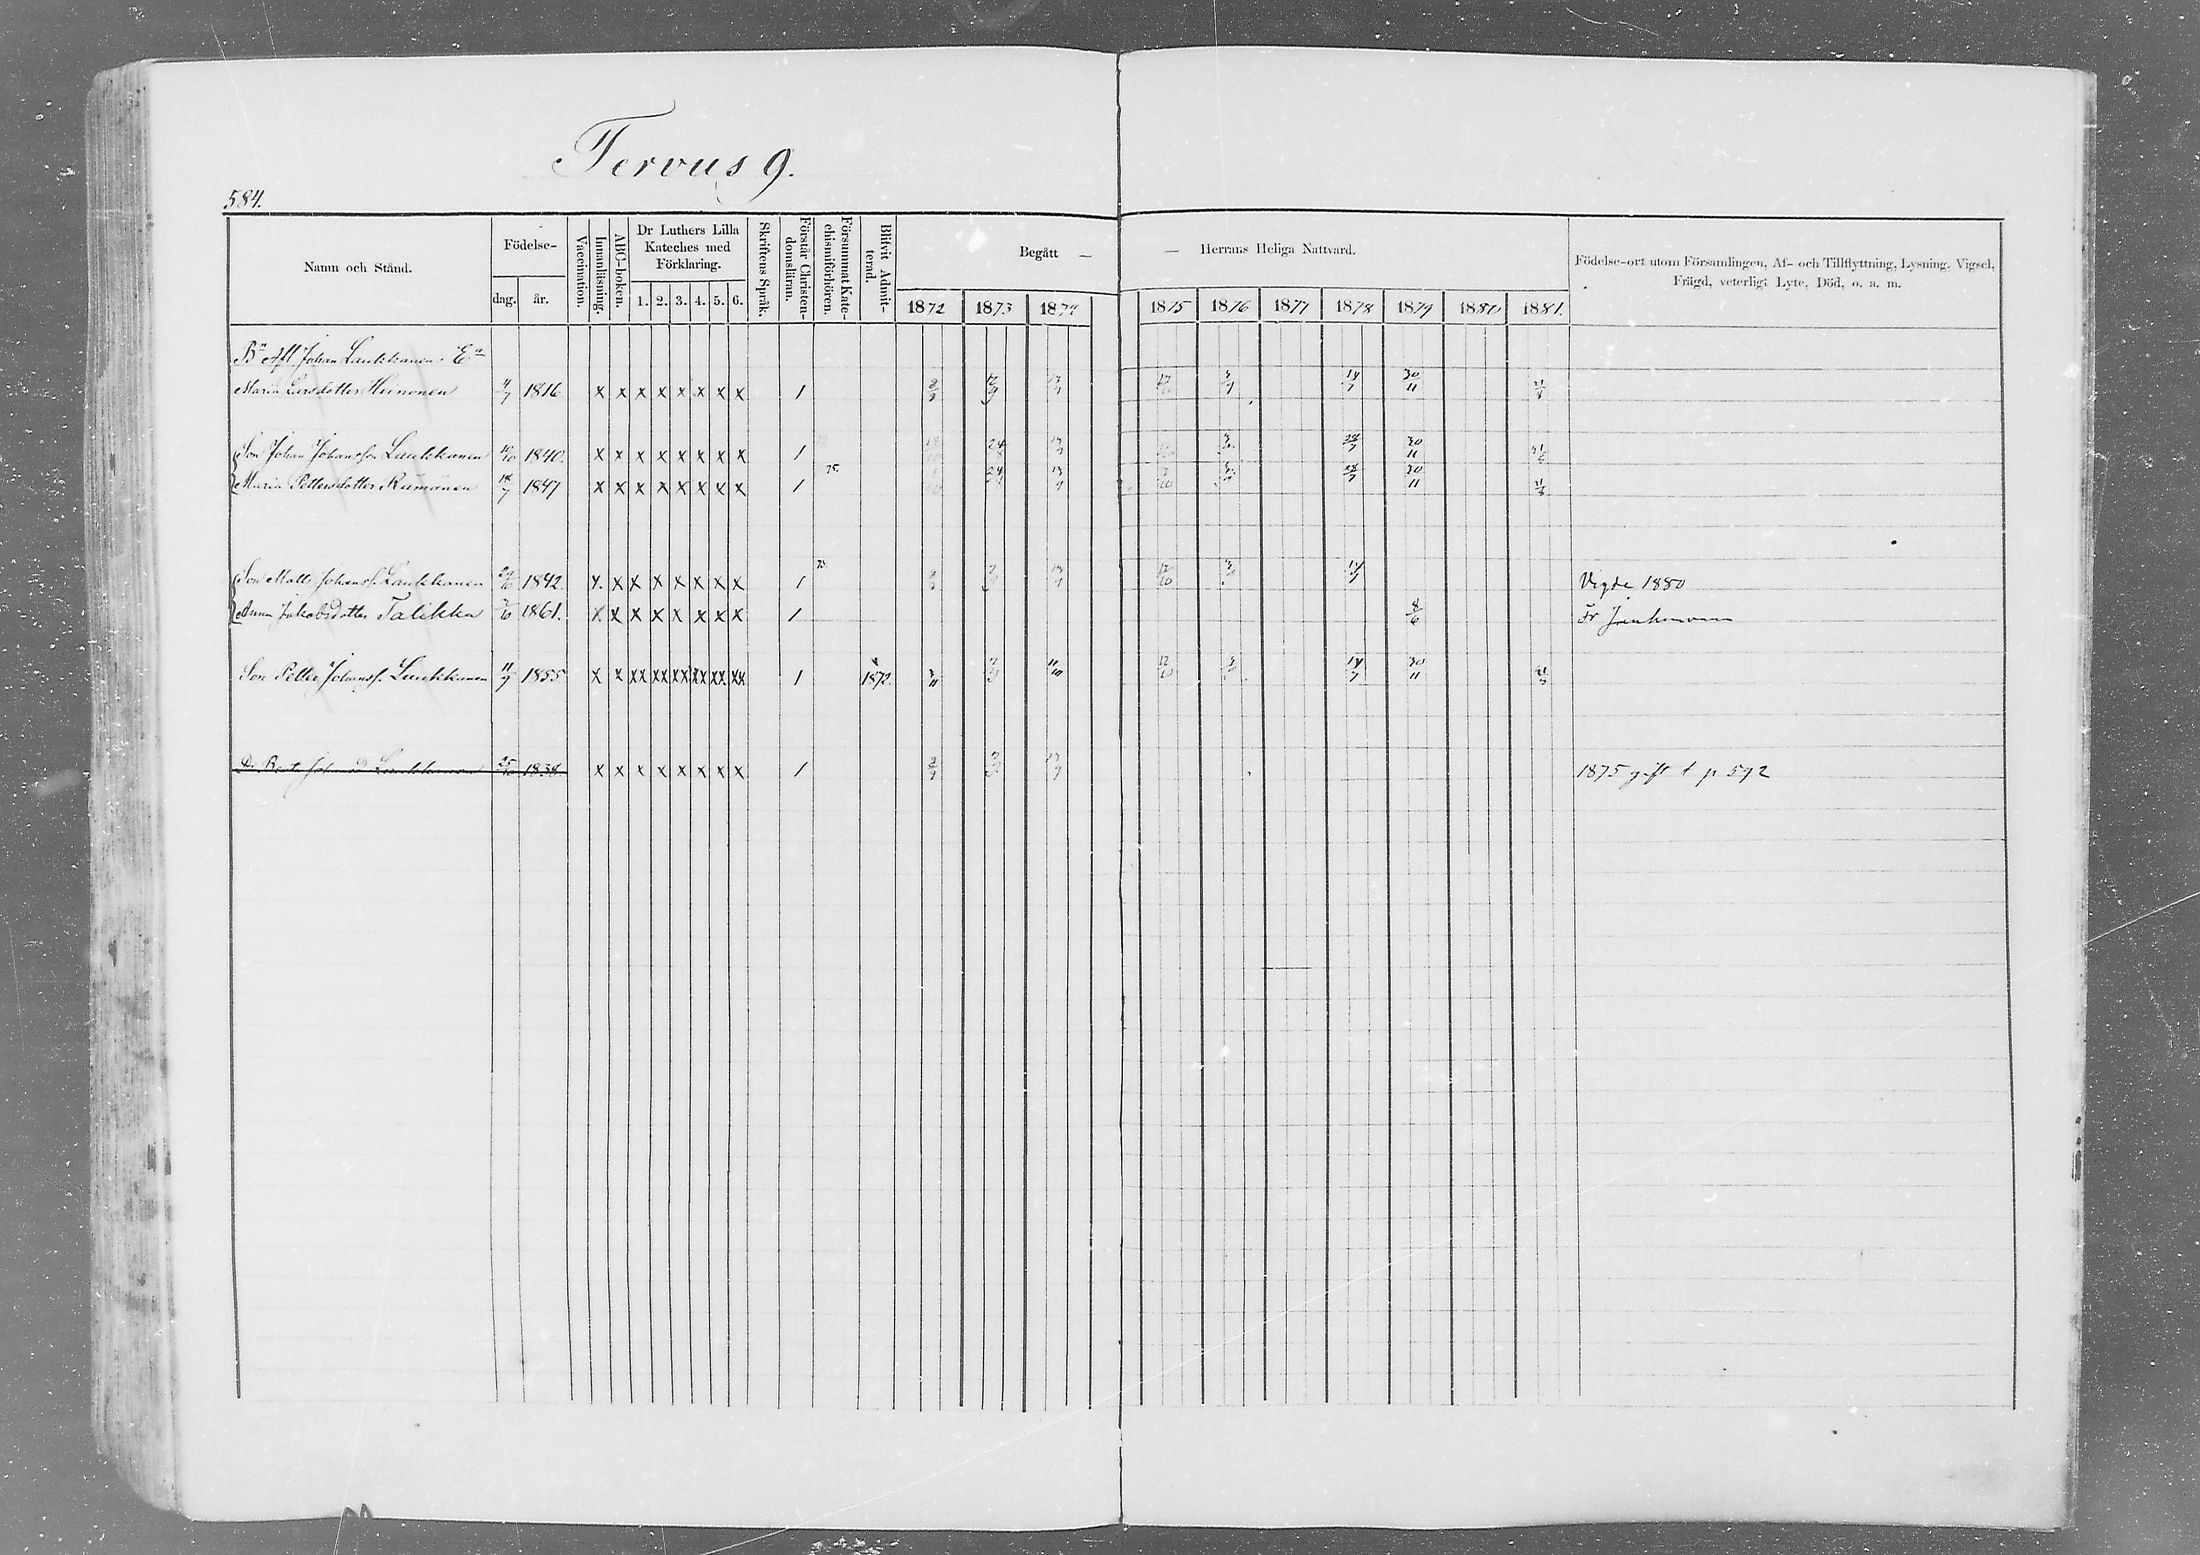 Tervus 9.
584.
Namn och Stånd.
Födelse-
dag.
år.
Vaccination.
Innanläsning.
ABC-boken.
Dr Luthers Lilla
Kateches med
Förklaring.
1. 2. 3. 4. 5. 6.
Skriftens Språk.
Förstår Christen-
domsläran.
Försummat Kate-
chismiförhören.
Blifvit Admit-
terad.
Begått — — Herrans Heliga Nattvard.
1872 1873 1874 1875 1876 1877 1878 1879 1880 1881.
Födelse-ort utom Församlingen, Af- och Tillflyttning, Lysning, Vigsel,
Frägd, veterligt Lyte, Död, o. a. m.
Bn Afl. Johan Laukkanen En
Maria Larsdotter Hinonen 4/7 1816 x x x x x x x x 1 30/11
Son Johan Johansson Laukkanen 1840. x x x x x x x x 1 30/11
Maria Pettersdotter 18/7 1847 x x x x x x x x 1 75. 30/11
Son Matts Johanss. Laukkanen 1842. x x x x x x x x 1 12/10 14/7 Vigde 1880
Anna Jakobsdotter Talikka 1861. x x x x x x x x 1 8/6 Fr
Son Petter Johanss. Laukkanen 11/9 1855 x x xx xx xx xx xx xx 1 1872. 12/10 14/7 30/11
Dr Johans D Laukkanen 1838 x x x x x x x x 1 1875 gift t p 592